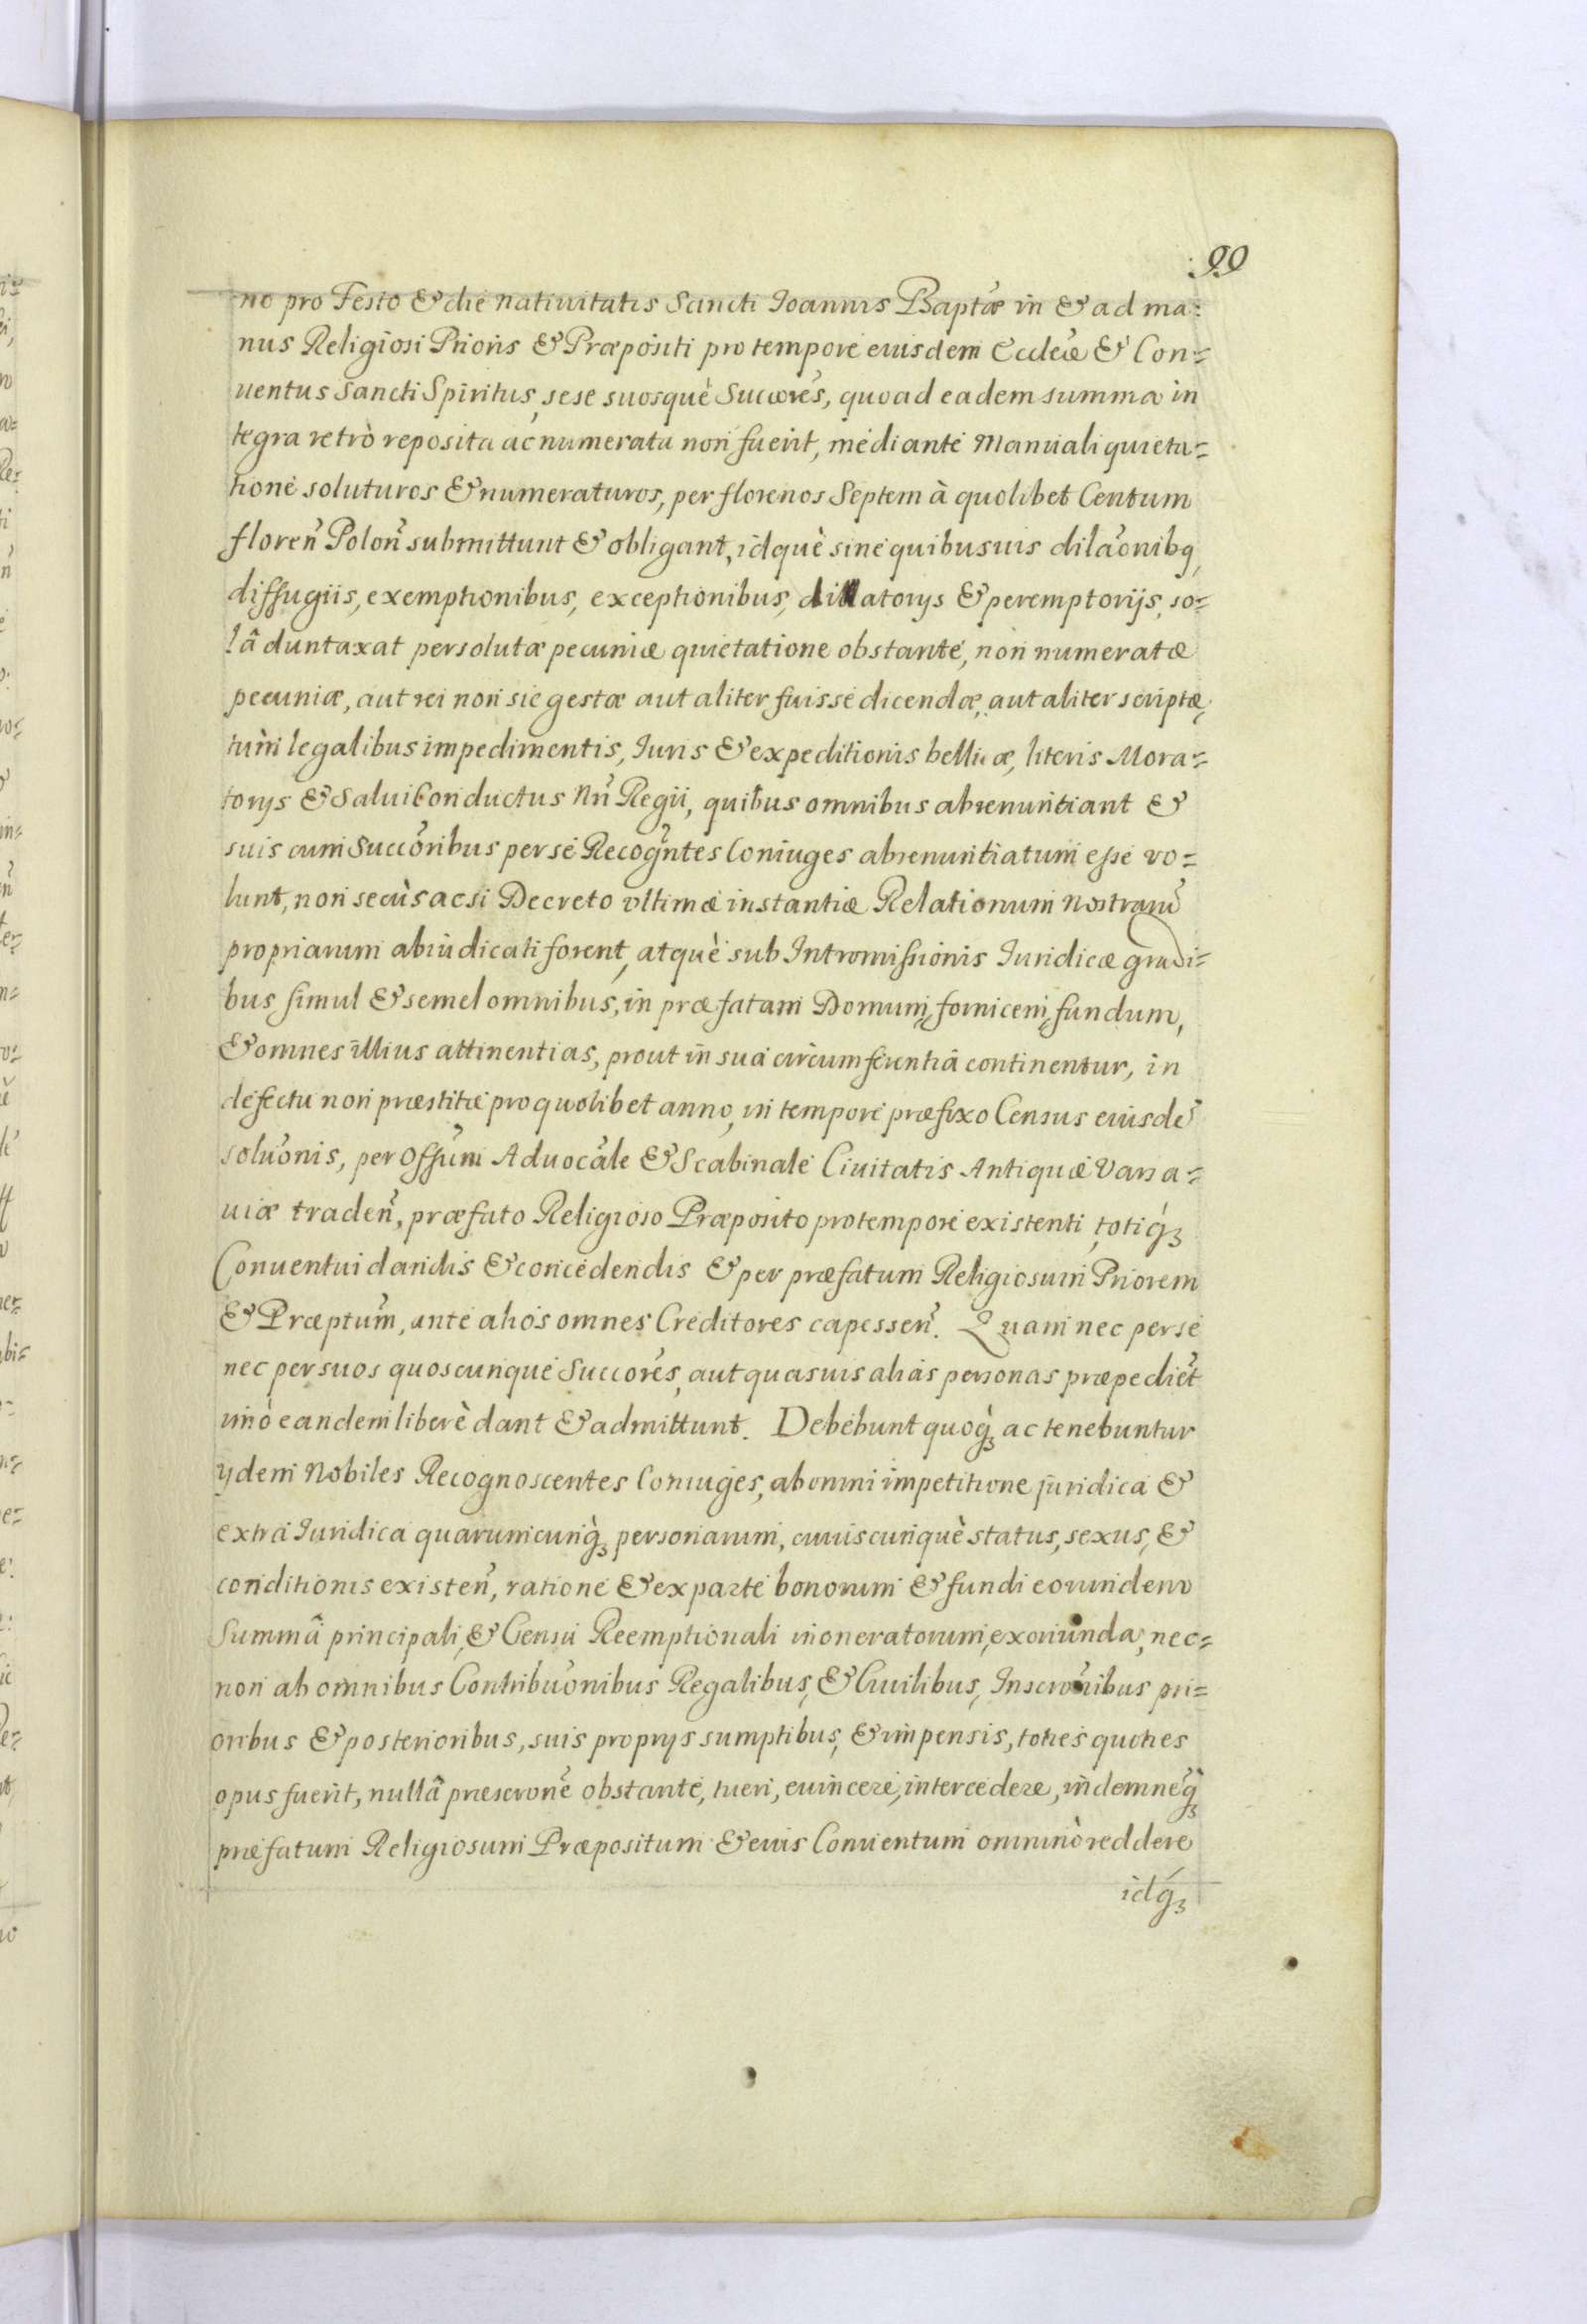 99
no pro Festo & die nativitatis Sancti Ioannis Baptæ in & ad ma:
nus Religiosi Prioris & Præpositi pro tempore eiusdem Eccleæ & Con=
uentus Sancti Spiritus, sese suosquè Succores, quoad eadem summa in
tegra retrò reposita ac numerata non fuerit, mediante Manuali quieta=
tione soluturos & numeraturos, per florenos Septem à quolibet Centum
floreñ Poloñ submittunt & obligant, idquè sine quibusuis dilaonibq,
diffugiis, exemptionibus, exceptionibus, dillatorijs & peremptorijs, so=
lâ duntaxat persolutæ pecuniæ quietatione obstante, non numeratæ
pecuniæ, aut rei non sic gestæ aut aliter fuisse dicendæ, aut aliter scriptæ,
tum legalibus impedimentis, Iuris & expeditionis bellicæ, literis Mora=
torijs & Salui Conductus Nñ Regii, quibus omnibus abrenuntiant &
suis cum Succoribus per se Recogntes Coniuges abrenuntiatum esse vo=
lunt, non secùs ac si Decreto vltimæ instantiæ Relationum Nostraru
propriarum abiudicati forent, atquè sub Intromissionis Iuridicæ gradi=
bus simul & semel omnibus, in præfatam Domum, fornicem, fundum,
& omnes illius attinentias, prout in sua circumferentia continentur, in
defectu non præstitæ pro quolibet anno, in tempore præfixo Census eiusde
soluonis, per Offum Aduocale & Scabinale Ciuitatis Antiquæ Varsa=
uiæ tradeñ, præfato Religioso Præposito pro tempore existenti, totiq́ꝫ
Conuentui dandis & concedendis & per præfatum Religiosum Priorem
& Præptum, ante alios omnes Creditores capesseñ. Quam nec per se
nec per suos quoscunque Succores, aut quasuis alias personas præpediet
imò eandem liberè dant & admittunt. Debebunt quoq̀ꝫ ac tenebuntur
ijdem Nobiles Recognoscentes Coniuges, ab omni impetitione juridica &
extra Iuridica quarumcunq̀ꝫ personarum, cuiuscunquè status, sexus, &
conditionis existeñ, ratione & ex parte bonorum & fundi eorundem
Summâ principali, & Censu Reemptionali inoneratorum, exoriunda, nec=
non ab omnibus Contribuonibus Regalibus, & Ciuilibus, Inscronibus pri=
oribus & posterioribus, suis proprijs sumptibus, & impensis, toties quoties
opus fuerit, nullâ præscrone obstante, tueri, euincere, intercedere, indemneq̀ꝫ
præfatum Religiosum Præpositum & eius Conuentum omninò reddere
idq́ꝫ